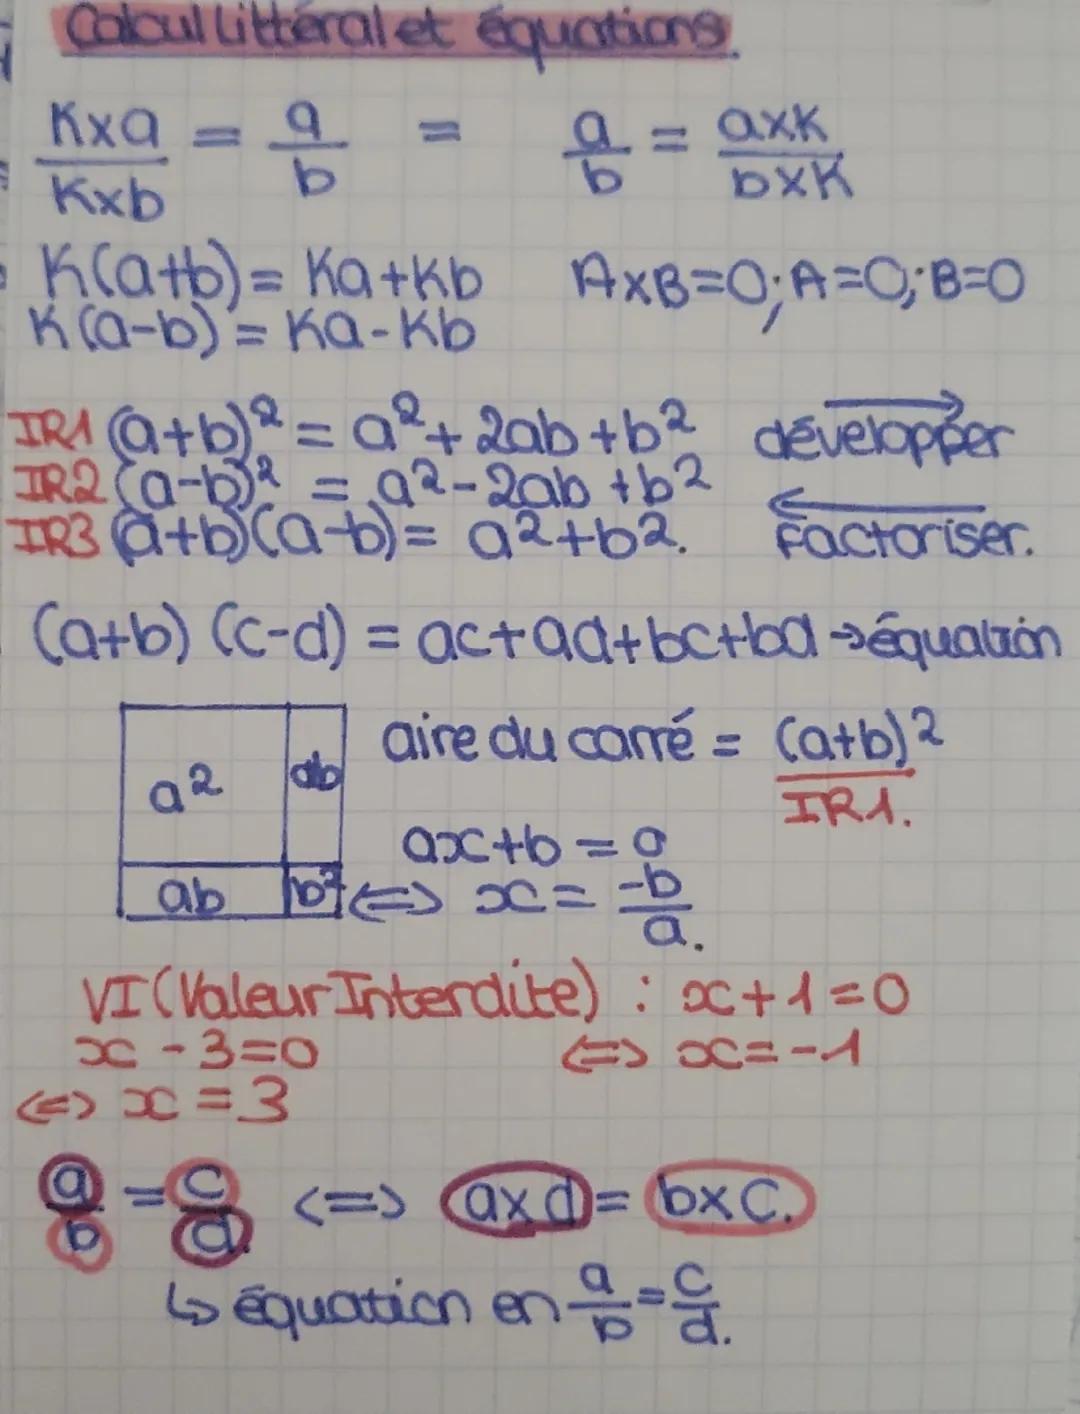 Calcul littéral et équations.
K×a/K×b = a/b = a/b = a×K/b×K
K(a+b) = Ka+Kb A×B=0; A=0; B=0
K(a-b) = Ka-Kb
IR1 (a+b)² = a² + 2ab + b² développer
IR2 (a-b)² = a² - 2ab + b²
IR3 (a+b)(a-b) = a²+b². Factoriser.
(a+b) (c-d) = ac+ad+bc+bd → équation
a² ab aire du carré = (a+b)²
IR1.
ax+b = 0
ab b² <=> x = -b/a.
VI (Valeur Interdite) : x+1=0
x - 3=0 <=> x=-1
<=> x = 3
a/b = c/d. <=> a×d = b×c.
↳ équation en a/b = c/d.